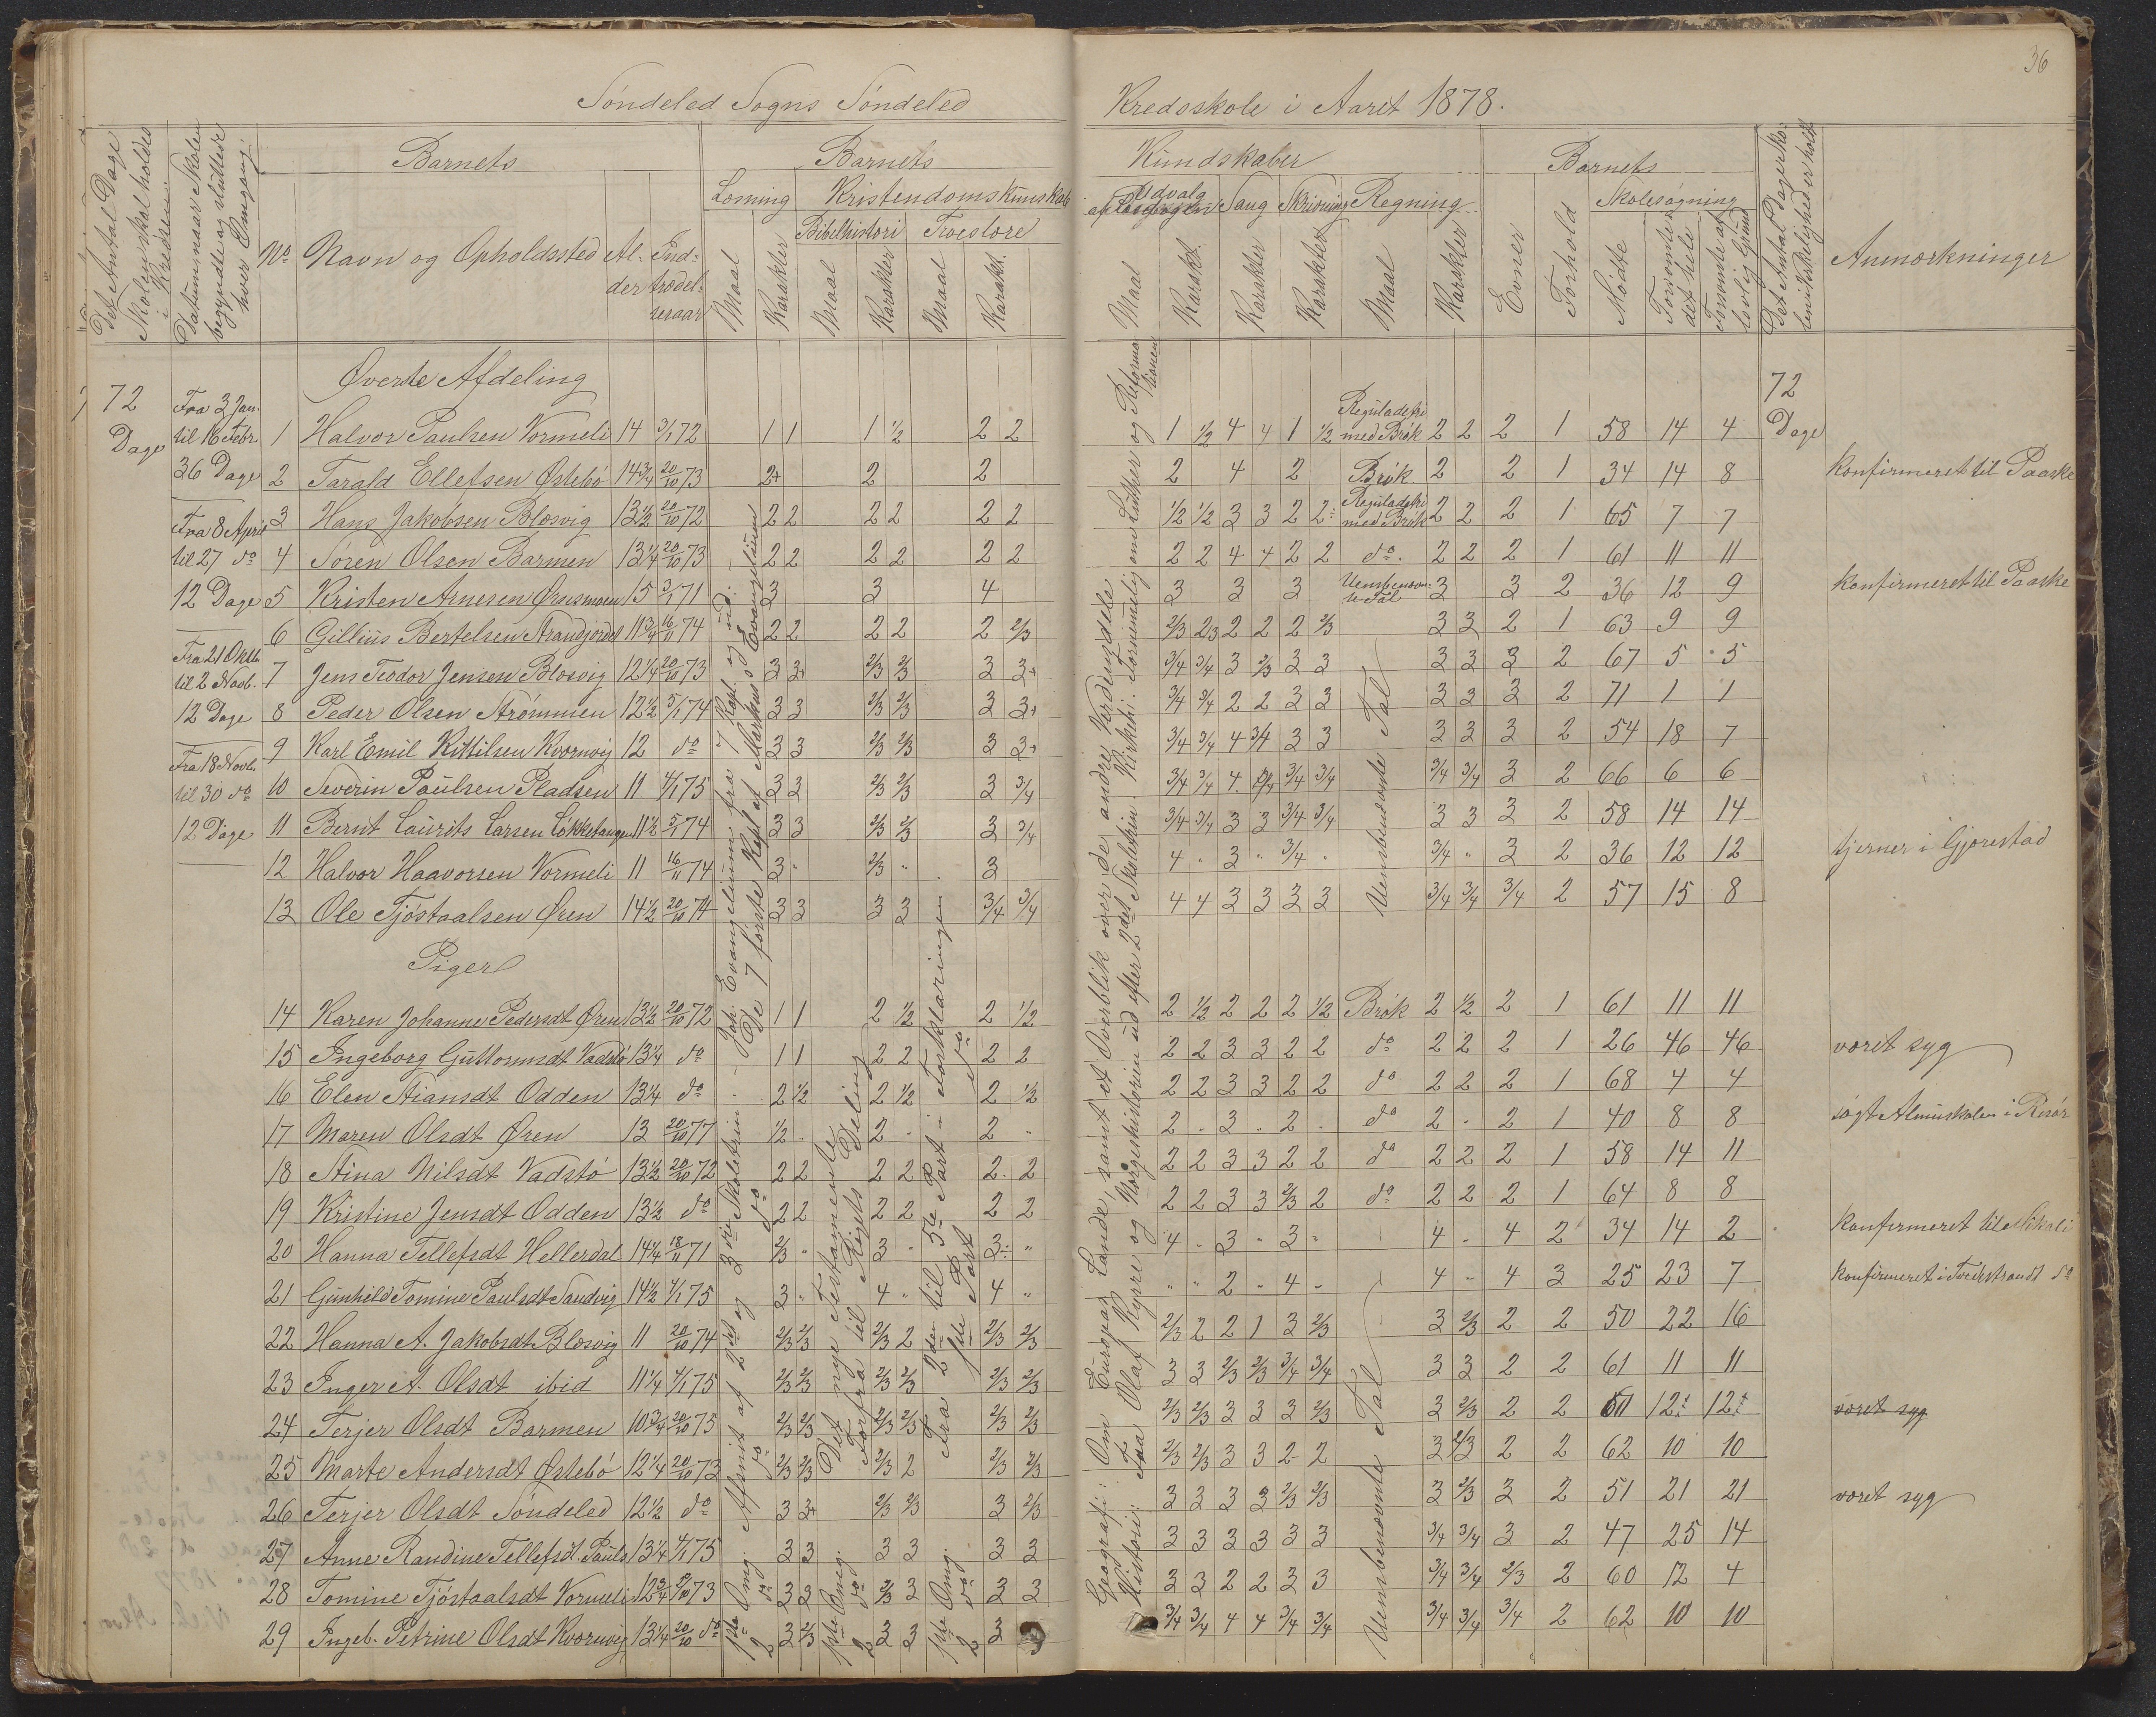 36
Söndeled Sogns Söndeled Kredsskole i Aaret 1878.
Det Antal Dage Skolen skal holdes i Kredsen
Datum naar Skolen begyndte og sluttede hver Omgang
Barnets
No Navn og Opholdssted Alder Indtrædelsesaar
Barnets Kundskaber
Læsning Kristendomskunskab
Bibelhistori Troeslære
Maal Karakter Maal Karakter Maal Karakt.
Udvalg af Læsebogen Sang Skrivning Regning
Maal Karakt. Karakter Karakter Maal Karakter
Barnets
Evner Forhold
Skolesøgning
Mødte Forsømte det hele Forsømte af lovlig Grund
Det Antal Dage Skolen i Virkeligheden er holdt
Anmærkninger
72 Dage
Fra 3 Jan. til 16 Febr
36 Dage
Fra 8 April til 27 do
12 Dage
Fra 21 Oktb. til 2 Novb.
12 Dage
Fra 18 Novb. til 30 do
12 Dage
Øverste Afdeling
1 Halvor Paulsen Vormeli 14 3/1 72 1 1 1 1/2 2 2 1 1/2 4 4 1 1/2 Reguladetri med Brøk 2 2 2 1 58 14 4 72 Dage
2 Tarald Ellefsen Østebö 14 3/4 20/10 73 2+ 2 2 2 4 2 Brök 2 2 1 34 14 8 Konfirmeret til Paaske
3 Hans Jakobsen Blæsvig 13 1/2 20/10 72 2 2 2 2 2 2 1/2 1/2 3 3 2 2 Reguladetri med Brök 2 2 2 1 65 7 7
4 Sören Olsen Barmen 13 1/4 20/10 73 2 2 2 2 2 2 2 2 4 4 2 2 do. 2 2 2 1 61 11 11
5 Kristen Arnesen Ørnsmoen 15 3/1 71 3 3 4 3 3 3 Uensbenævnte Tal 3 3 2 36 12 9 Konfirmeret til Paaske
6 Gillius Bertelsen Strandjordet 11 3/4 16/11 74 2 2 2 2 2 2/3 2/3 2/3 2 2 2 2/3 3 3 2 1 63 9 9
7 Jens Teodor Jensen Blæsvig 12 1/4 20/10 73 3 3+ 2/3 2/3 3 3+ 3/4 3/4 3 2/3 3 3 3 3 3 2 67 5 5
8 Peder Olsen Strömmen 12 1/2 5/1 74 3 3 2/3 2/3 3 3+ 3/4 3/4 2 2 3 3 3 3 3 2 71 1 1
9 Karl Emil Kittilsen Kvornvig 12 do 3 3 2/3 2/3 3 3+ 3/4 3/4 4 3/4 3 3 3 3 3 2 54 18 7
10 Severin Paulsen Pladsen 11 4/1 75 3 3 2/3 2/3 3 3/4 3/4 3/4 4 3/4 3/4 3/4 3/4 3 2 66 6 6
11 Bernt Laurits Larsen Lökketangen 11 1/2 5/1 74 3 3 2/3 2/3 3 3/4 3/4 3/4 3 3 3/4 3/4 3 3 3 2 58 14 14
12 Halvor Haavorsen Vormeli 11 16/11 74 3 " 2/3 " 3 4 " 3 " 3/4 " 3/4 " 3 2 36 12 12 tjerner i Gjærestad
13 Ole Tjöstaalsen Øren 14 1/2 20/10 74 3 3 3 3 3/4 3/4 4 4 3 3 3 3 3/4 3/4 3/4 2 57 15 8
Piger
14 Karen Johanne Pedersdt Øren 13 1/2 20/10 72 1 1 2 1/2 2 1/2 2 1/2 2 2 2 1/2 Brök 2 1/2 2 1 61 11 11
15 Ingeborg Guttormsdt Vadstö 13 1/4 do 1 1 2 2 2 2 2 2 3 3 2 2 do 2 2 2 1 26 46 46 været syg
16 Elen Stiansdt Odden 13 1/4 do 2 1/2 2 1/2 2 1/2 2 2 3 3 2 2 do 2 2 2 1 68 4 4
17 Maren Olsdt Øren 13 20/10 77 1/2 2 " 2 " 2 " 3 " 2 " do 2 " 2 1 40 8 8 søgt Almuskolen i Risör
18 Stina Nilsdt Vadstö 13 1/2 20/10 72 2 2 2 2 2 2 2 2 3 3 2 2 do 2 2 2 1 58 14 11
19 Kristine Jensdt Odden 13 1/2 do 2 2 2 2 2 2 2 2 3 3 2/3 2 do 2 2 2 1 64 8 8
20 Hanna Tellefsdt Hellersdal 14 1/4 18/11 71 2/3 " 3 " 3 " 4 " 3 " 3 " 4 " 4 2 34 14 2 Konfirmeret til Mikali
21 Gunhild Tomine Paulsdt Sandvig 14 1/2 4/1 75 3 " 4 " 4 " " " 2 " 4 " 4 " 4 3 25 23 7 Konfirmeret i Tvedestrand do
22 Hanna A. Jakobsdt Blæsvig 11 20/10 74 2/3 2/3 2/3 2 2/3 2/3 2/3 2 2 1 3 2/3 3 2/3 2 2 50 22 16
23 Inger A. Olsdt ibid 11 1/4 4/1 75 2/3 2/3 2/3 2/3 2/3 2/3 3 3 2/3 2/3 3/4 3/4 3 3 2 2 61 11 11
24 Terjer Olsdt Barmen 10 3/4 20/10 75 2/3 2/3 2/3 2/3 2/3 2/3 2/3 2/3 3 3 3 2/3 3 2/3 2 2 12 12 været syg
25 Marte Andersdt Östebö 12 1/4 20/10 73 2/3 2/3 2/3 2 2/3 2/3 2/3 2/3 3 3 2 2 3 2/3 2 2 62 10 10
26 Terjer Olsdt Söndeled 12 1/2 do 3 3+ 2/3 2/3 3 2/3 3 3 3 3 2/3 2/3 3 2/3 3 2 51 21 21 været syg
27 Anne Randine Tellefsdt. Pauls 13 1/4 4/1 75 3 3 3 3 3 3 3 3 3 3 3 3 3/4 3/4 3 2 47 25 14
28 Tomine Tjöstaalsdt Vormeli 12 3/4 73 3 3 2/3 3 3 3 3 3 2 2 3 3 3/4 3/4 2/3 2 60 12 4
29 Ingeb. Petrine Olsdt Kvornvig 13 1/4 20/10 do 3 2/3 3 3 3 3/4 3/4 4 4 3/4 3/4 3/4 3/4 3/4 2 62 10 10
1ste Omg. Afsnit af 2det og 3die Skoletrin Joh. Evangelium fra 7 Kapl. og ud.
2 do do do De 7 første Kapl. af Markus Evangelium
1ste Omg. Det nye Testamente
2 do Forfra til Rigets Deling
1ste Omg. Fra 2den til 5te Part i Forklaringen
2 do 1ste Part do
Geografi: Om Europas Lande, samt et Overblik over de andre Verdensdele
Historie: Fra Olaf Kyrre og Norgeshistorien ud efter 2det Skoletrin. Kirkehi: fornemmelig om Luther og Reformationen
Uensbenævnte Tal
Uensbenævnte Tal